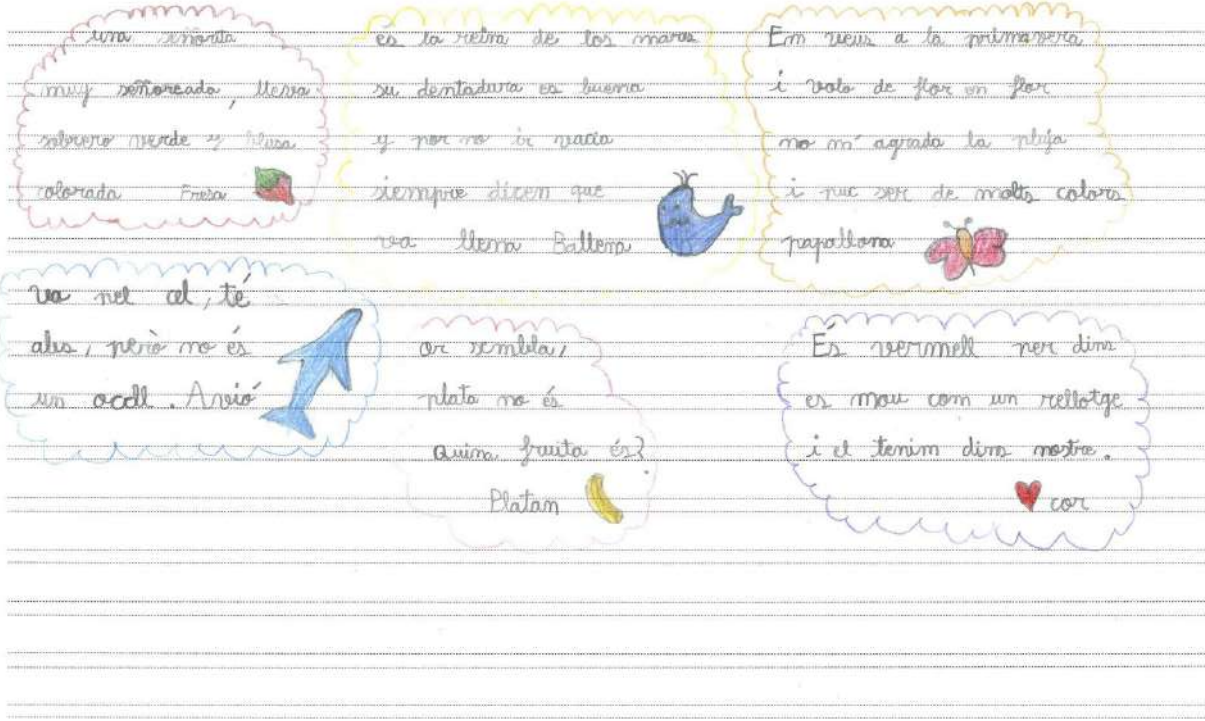 una señorita
muy señoreada, lleva
sobrero verde y blusa
colorada Fresa
és la reina de los mares
su dentadura es buena
y por no ir vacia
siempre dicen que
va llena Ballena
Em veus a la primavera
i volo de flor en flor
no m'agrada la pluja
i puc ser de molts colors
papallona
va pel cel, té
ales, però no és
un ocell. Avió
or sembla,
plata no és
Quina fruita és?
Platan
És vermell per dins
es mou com un rellotge
i el tenim dins nostre.
cor